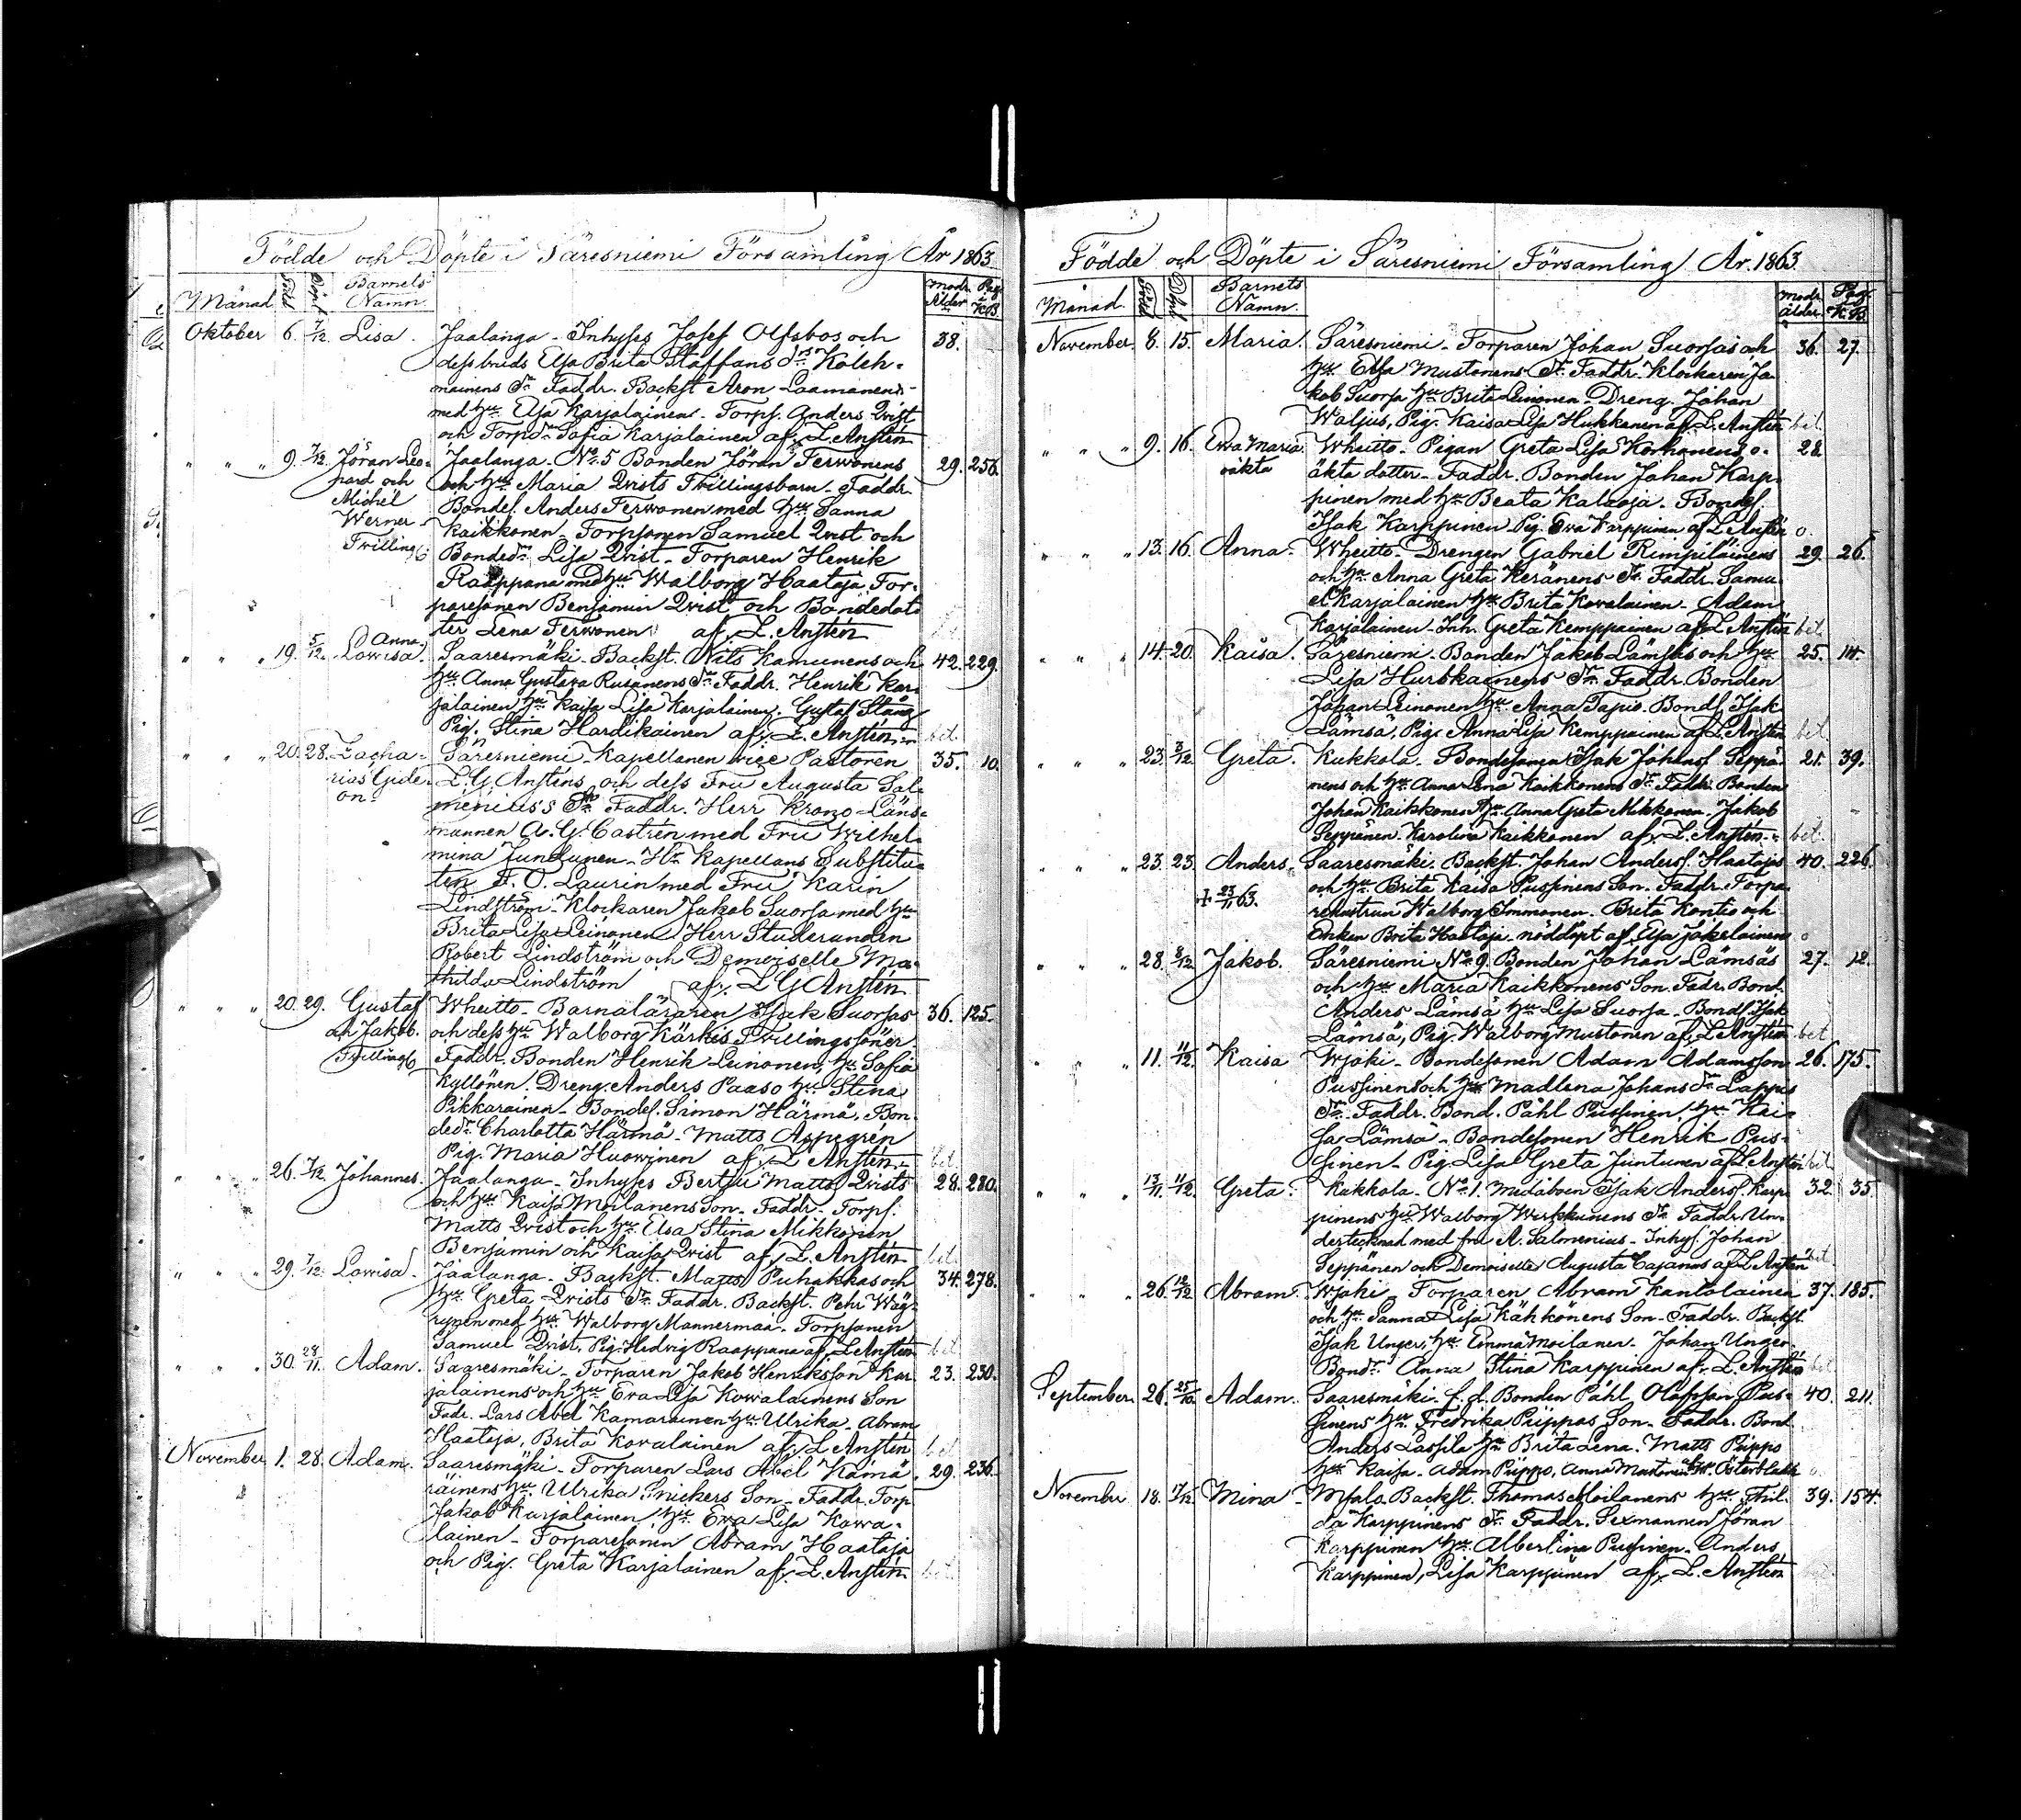 Födde och Döpte i Säresniemi Församling År 1863.
Månad Född Döpt Barnets Namn. Modr. Ålder Pag. K.B.
Oktober 6. 7/12. Lisa. Jaalanga - Inhyses Josef Olfsbos och 38.
dess bruds Elsa Brita Staffans drs Koleh-
mainens Dr. Faddr. Backst Aron Laamanen
med hu. Elsa Karjalainen - Torps. Anders Qvist
och Torpdr. Sofia Karjalainen af L. Anstén
" " " 9. 7/12. Jöran Leo- Jaalanga. No. 5 Bonden Jöran Terwonens 29. 256.
pard och och hu. Maria Qvists Tvillingsbarn - Faddr.
Michél Bondes. Anders Terwonen med hu. Sanna
Werner Kaikkonen - Torpsonen Samuel Qvist och
Tvilling Bondedr. Lisa Qvist - Torparen Henrik
Raappana med hu. Walborg Haataja, Tor-
paresonen Benjamin Qvist och Bondedot
ter Lena Terwonen af L. Anstén
" " " 19. 5/12. Anna Lovisa. Saaresmäki - Backst. Nils Kamunens och 42. 229.
hu. Anna Gustava Rusanens Dr. Faddr. Henrik Kar-
jalainen hu. Kaisa Lisa Karjalainen. Gustaf Stång
Pig. Stina Hardikainen af L. Anstén bet
" " " 20. 28. Zacha- Säresniemi - Kapellanen vice Pastoren 35. 10.
rias Gide- L. G. Ansténs och dess Fru Augusta Sal-
on menius's Son Faddr. Herr Krono Läns-
mannen A. G. Castrén med Fru Wilhel-
mina Junlunen - Hr. Kapellans Substitu-
ten F. O. Laurin med Fru Karin
Lindström - Klockaren Jakob Suorsa med hu
Brita Lisa Leinonen, Herr Studeranden
Robert Lindström och Demoiselle Ma-
thilda Lindström af L G Anstén
" " " 20. 29. Gustaf Wheitto - Barnaläraren Isak Suorsas 36. 125.
och Jakob. och dess hu. Walborg Kärkis Tvillingssöner
Tvilling Faddr. Bonden Henrik Leinonen, hu. Sofia
Kyllönen. Dreng. Anders Paaso hu. Stina
Pikkarainen - Bondes. Simon Härmä, Bon-
dedr. Charlotta Härmä - Matts Aspegrén
Pig. Maria Huowinen af L Anstén. bet
" " " 26. 7/12. Johannes. Jaalanga - Inhyses Bertsu Matts Qvists 28. 280.
och hu. Kaisa Moilanens Son - Faddr. Torps.
Matts Qvist och hu. Elsa Stina Mikkonen
Benjamin och Kaisa Qvist af L. Anstén bet
" " " 29. 7/12. Lovisa. Jaalanga - Backst. Matts Puhakkas och 34. 278.
hu. Greta Qvists Dr. Faddr. Backst. Pehr Wäy-
rynen med hu. Walborg Mannermaa. Torpsonen
Samuel Qvist. Pig. Hedvig Raappana af L Anstén bet
" " " 30. 28/11. Adam. Saaresmäki - Torparen Jakob Henriksson Kar- 23. 230.
jalainens och hu. Eva Lisa Kowalainens Son
Fadr. Lars Abel Kamarainen hu. Ulrika - Abram
Haataja, Brita Kovalainen af L Anstén bet
November 1. 28. Adam. Saaresmäki - Torparen Lars Abel Kämä- 29. 236.
räinens hu. Ulrika Snickers Son - Faddr. Torp.
Jakob Karjalainen hu. Eva Lisa Kowa-
lainen - Torparesonen Abram Haataja
och Pig. Greta Karjalainen af L. Anstén. bet
Födde och Döpte i Säresniemi Församling År 1863.
Månad. Född Döpt Barnets Namn. Modr. ålder Pag. K.B.
November. 8. 15. Maria. Säresniemi - Torparen Johan Suorsas och 36. 27.
hu. Elsa Mustonens Dr. Faddr. Klockaren Ja-
kob Suorsa hu. Brita Leinonen - Dreng. Johan
Waljus, Pig. Kaisa Lisa Hukkanen af L. Anstén bet.
" " " 9. 16. Eva Maria Wheitto - Pigan Greta Lisa Korhonens o- 28.
oäkta äkta dotter - Faddr. Bonden Johan Karp-
pinen med hu. Beata Kalaoja. Bondes.
Isak Karppinen Pig. Eva Karppinen af L Anstén o.
" " " 13. 16. Anna. Wheitto - Drengen Gabriel Rimpiläinens 29. 26.
och hu. Anna Greta Keränens Dr. Faddr. Samu-
el Karjalainen hu. Brita Kovalainen - Adam
Karjalainen - Inh. Greta Kemppainen af L Anstén bet
" " " 14. 20. Kaisa. Säresniemi - Bonden Jakob Lämsäs och hu. 25. 14.
Lisa Hurskainens Dr. Faddr. Bonden
Johan Leinonen hu. Anna Tapio. Bonds. Isak
Lämsä, Pig. Anna Lisa Kemppainen af L Anstén bet
" " " 23. 3/12. Greta. Kukkola. Bondesonen Isak Johans. Seppä- 21. 39.
nens och hu. Anna Lena Kaikkonens Dr. Faddr. Bonden
Johan Kaikkonen hu. Anna Greta Mikkonen. Jakob
Seppänen. Karolina Kaikkonen af L. Anstén. bet.
" " " 23. 23. Anders. Saaresmäki. Backst. Johan Anders. Haatajas 40. 226.
och hu. Brita Kaisa Pussinens Son. Faddr. Torpa-
‡ 23/11 63. rehustrun Walborg Immonen. Brita Kontio och
Enkan Brita Haataja - nöddöpt af Elsa Jakelainen o
" " " 28. 8/12 Jakob. Säresniemi No. 9. Bonden Johan Lämsäs 27. 12.
och hu. Maria Kaikkonens Son. Fadr. Bond.
Anders Lämsä hu. Lisa Suorsa - Bonds. Isak
Lämsä, Pig. Walborg Mustonen af L Anstén bet
" " " 11. 11/12. Kaisa Wjoki - Bondesonen Adam Adamsson 26. 175.
Pussinens och hu. Madlena Johans Dr. Lappas
Dr. Faddr. Bond. Påhl Pussinen, hu. Kai-
sa Lämsä - Bondesonen Henrik Pus-
sinen - Pig. Lisa Greta Juntunen af L Anstén bet
" " " 13/11. 11/12. Greta. Kukkola - No. 1. Medåboen Isak Anders. Karp- 32. 35
pinens hu. Walborg Werkkunens Dr. Faddr. Un-
dertecknad med fru A. Salmenius - Inhys. Johan
Seppänen och Demoiselle Augusta Cajanus af L Anstén bet
" " " 26. 12/12 Abram. Wjoki - Torparen Abram Kantolainen 37. 185.
och hu. Sanna Lisa Kähkönens Son - Faddr. Backst.
Isak Unger, hu. Emma Moilanen - Johan Unger
Bondr. Anna Stina Karppinen af L. Anstén bet
September 26. 25/10. Adam. Saaresmäki - f. d. Bonden Påhl Olofsson Pus- 40. 211.
sinens hu. Fredrika Piippos Son - Faddr. Bond
Anders Lassila hu. Brita Lena. Matts Piippo
hu. Kaisa - Adam Piippo, Anna Mustonen af Österbladh
November 18. 7/12. Mina. Myalo. Backst. Thomas Moilanens hu. Thil- 39. 154.
da Karppinens Dr. Faddr. Sexmannen Jöran
Karppinen hu. Albertina Pussinen - Anders
Karppinen, Lisa Karppinen af L. Anstén